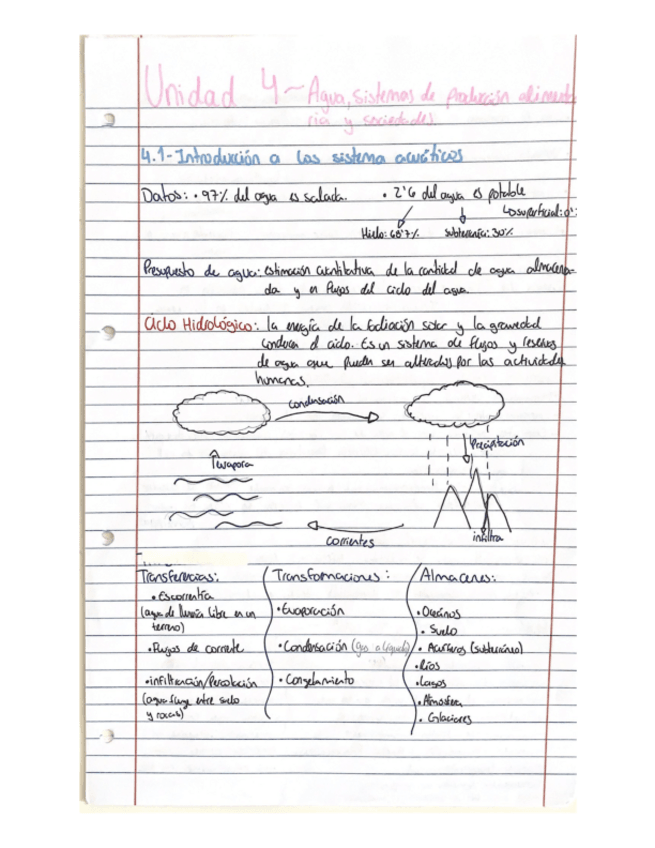 Unidad 4~ Agua, sistemas de producción alimenta
ria y sociedades.
4.1- Introducción a los sistema acuáticos
Datos: • 97% del agua es salada. • 2'6 del agua es potable
Hielo: 68'7% subterránea: 30% ↳ superficial: 0'
Presupuesto de agua: estimación cuantitativa de la cantidad de agua almacena-
da y en flujos del ciclo del agua.
Ciclo Hidrológico: la energía de la radiación solar y la gravedad
conducen el ciclo. Es un sistema de flujos y reservas
de agua que pueden ser alterados por las actividades
humanas.
condensación
Precipitación
Evapora
corrientes
infiltra
Transferencias:
• Escorrentía
(agua de lluvia libre en un
terreno)
• Flujos de corriente
• infiltración/Percolación
(agua fluye entre suelo
y rocas)
Transformaciones:
• Evaporación
• Condensación (gas a líquido)
• Congelamiento
Almacenes:
• Océanos
• Suelo
• Acuíferos (subterráneo)
• Ríos
• Lagos
• Atmósfera
• Glaciares